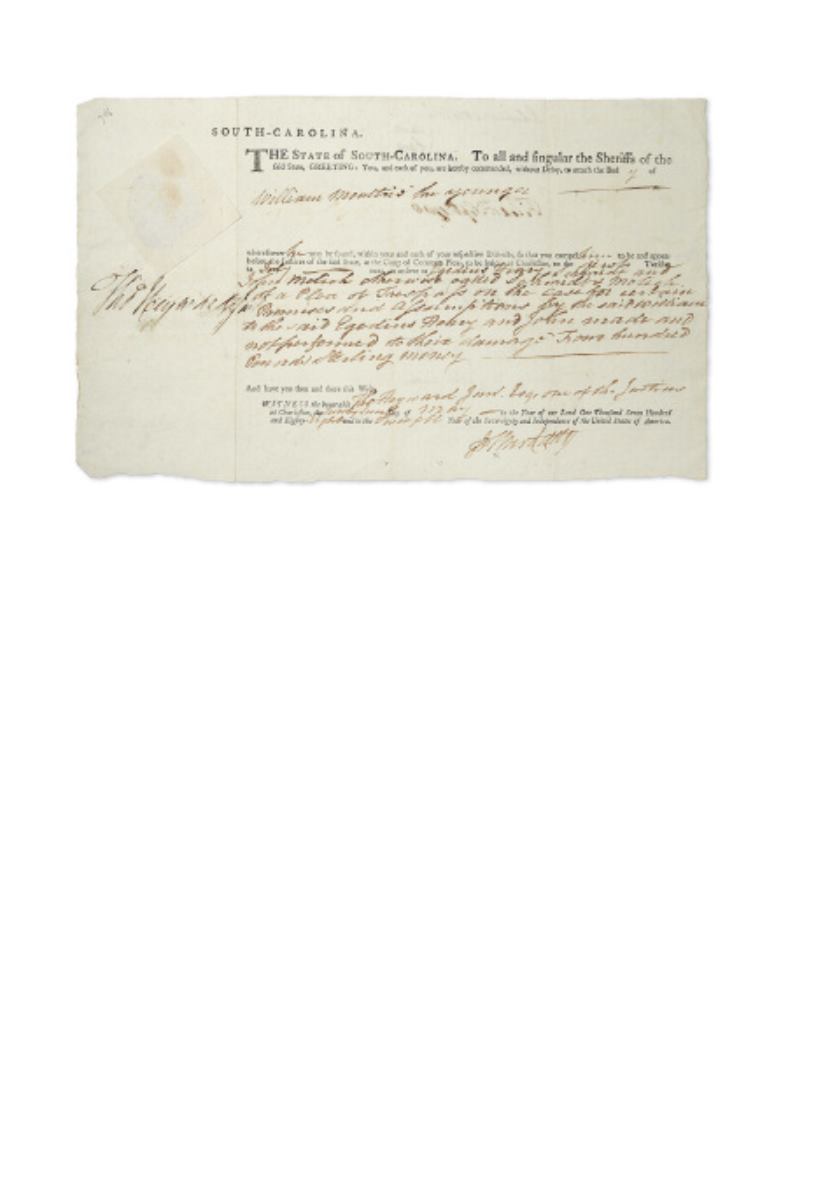 SOUTH-CAROLINA.
THE STATE of SOUTH-CAROLINA. To all and ſingular the Sheriffs of the
ſaid State, GREETING: You, and each of you, are hereby commanded, without Delay, to attach the Bod y of
William Moultrie the younger
whereſoever he may be found, within your and each of your reſpective Diſtricts, ſo that you compel him to be and appear
before the Juſtices of the ſaid State, at the Court of Common Pleas, to be holden at Charleſton, on the Tueſday
and
John otherwise called
of a Plea of Trespass on the Case for certain
Promises and Assumptions by the said William
to the said and John made and
not performed to their damage hundred
Pounds Sterling money
And have you then and there this Writ.
Thos Heyward Jun. Esq. one of the Justices
WITNESS the honorable
at Charleſton, the day of May in the Year of our Lord One Thouſand Seven Hundred
and Eighty-Eight and in the Twelfth Year of the Sovereignty and Independence of the United States of America.
Thos Heyward Jun